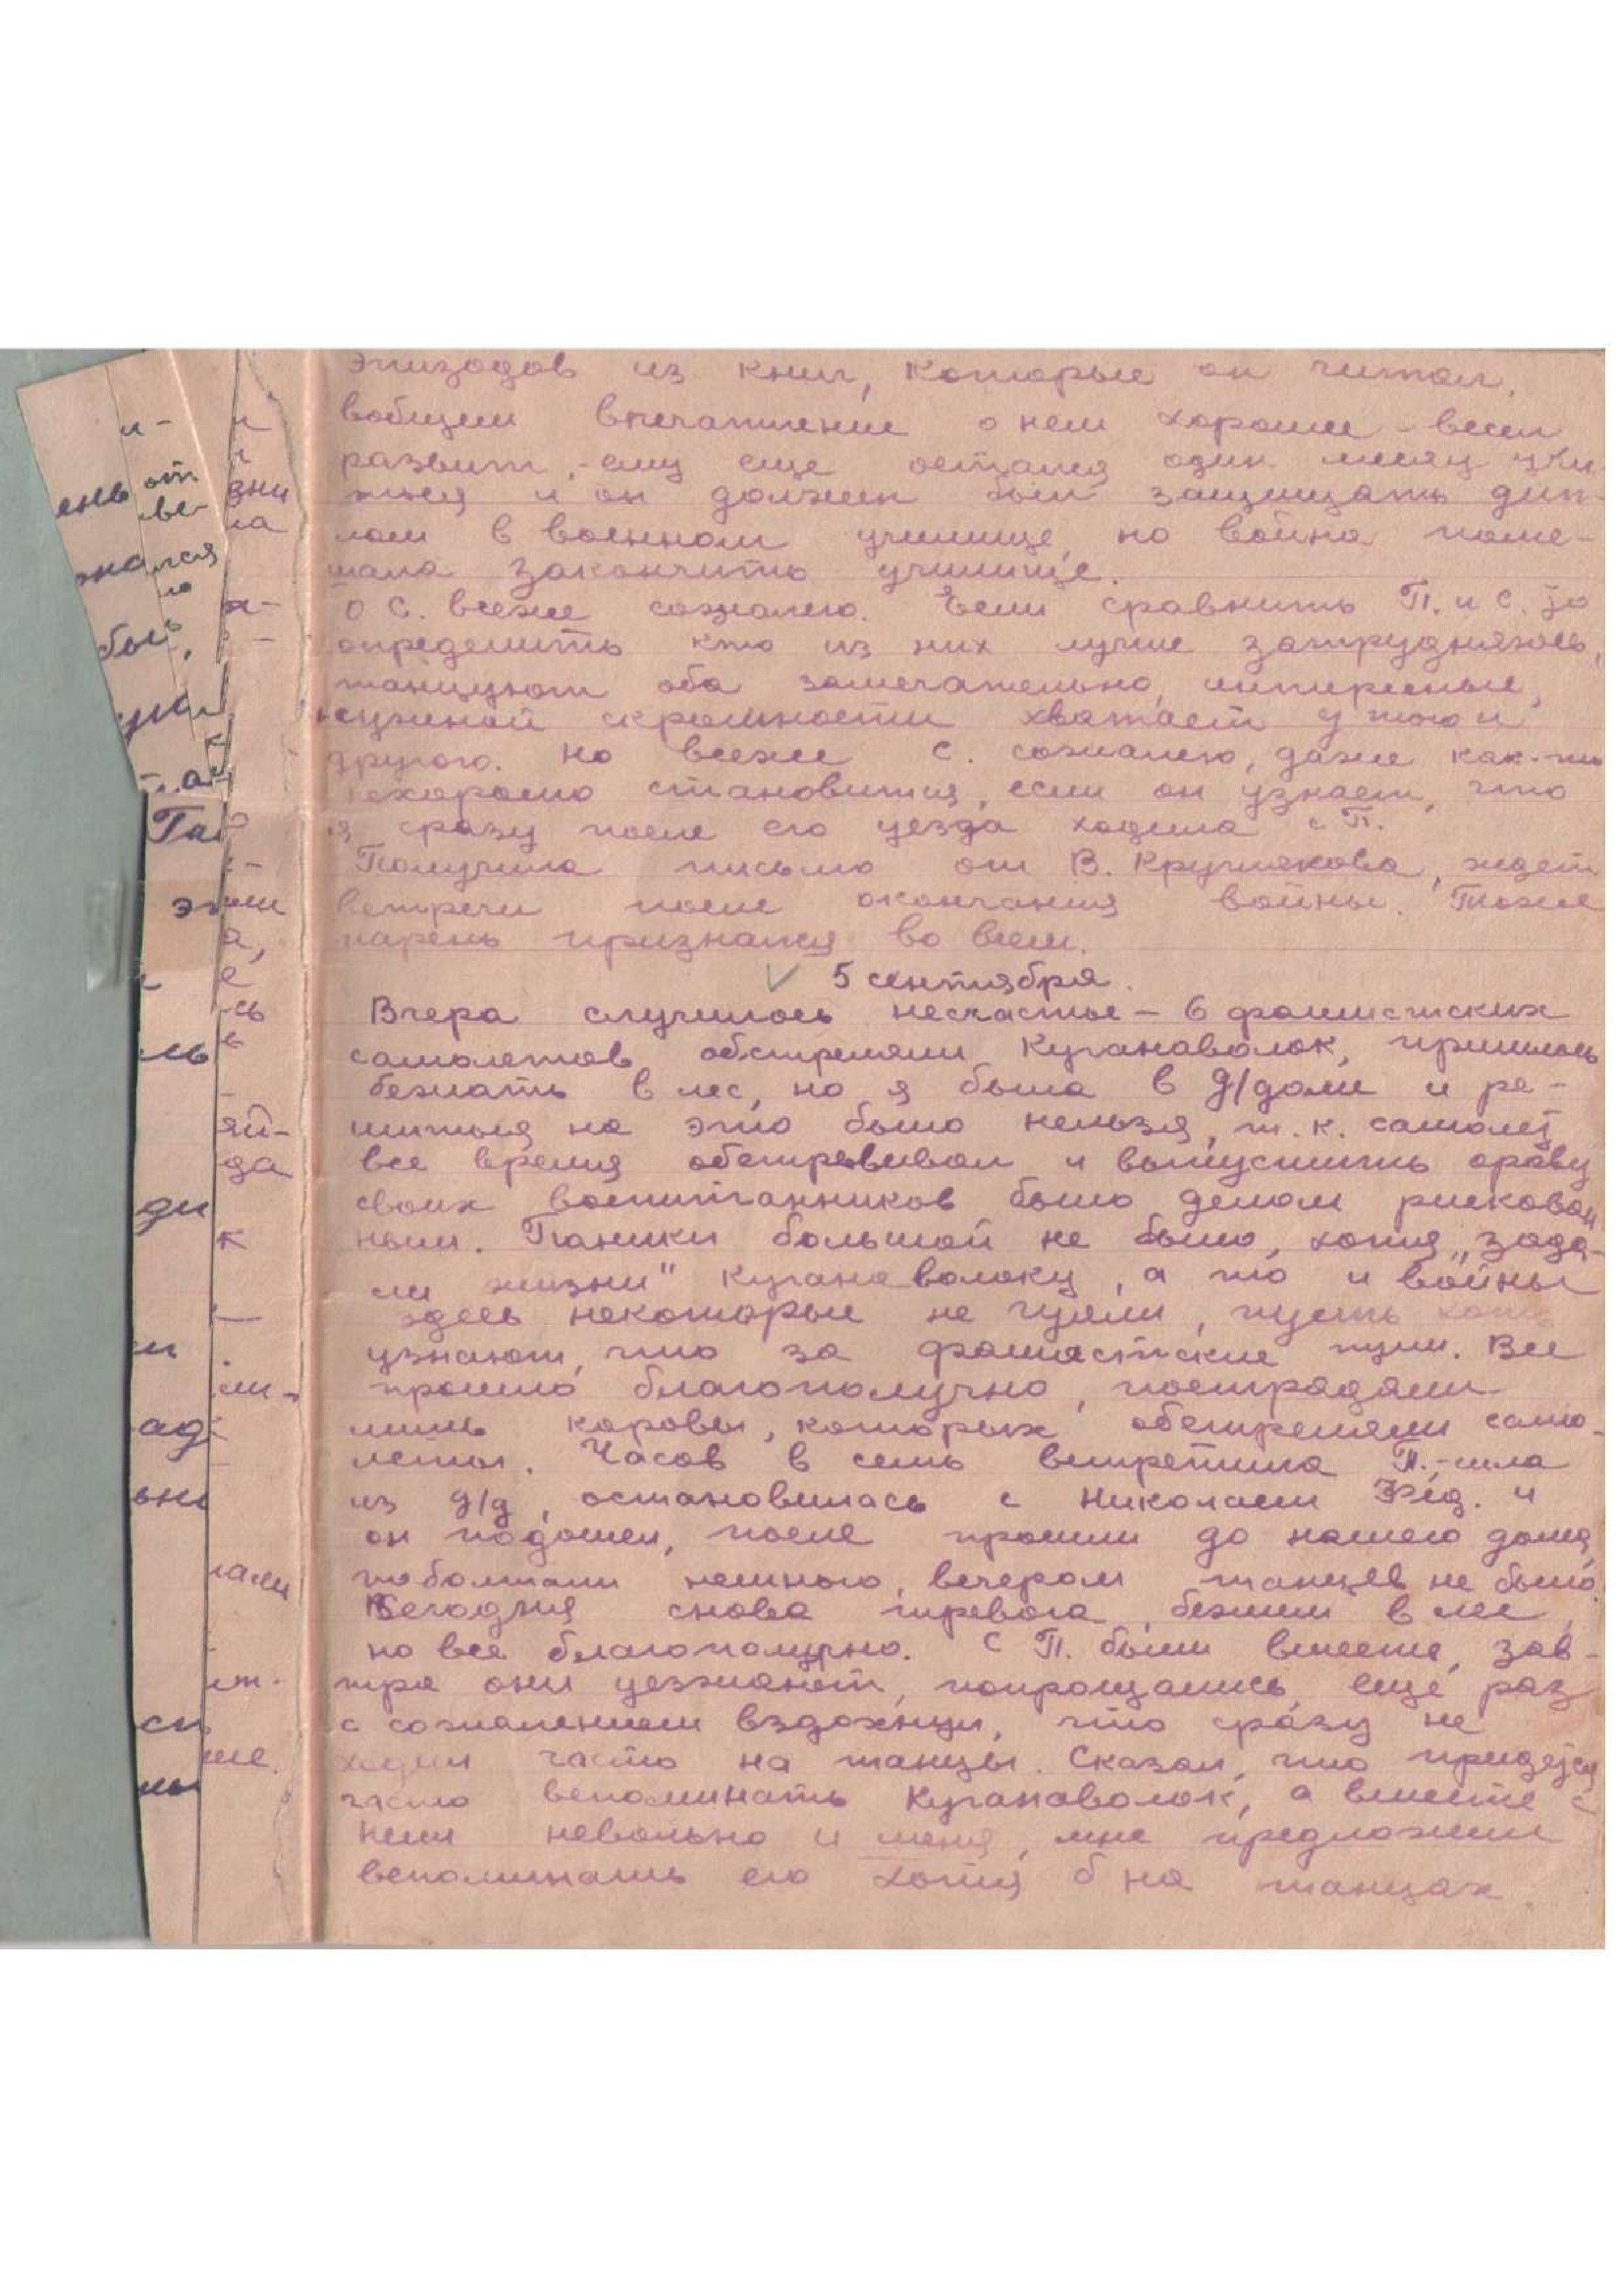 эпизодов из книг, которые он читал,
вобщем впечатление о нем хорошее - всем
развит, - ему еще остался один месяц учи
ться и он должен был защищать дип-
лом в военном училище, но война поме-
шала закончить училище.
О С. всеже сожалею. Если сравнить П. и С. то
определить кто из них лучше затрудняюсь,
танцуют оба замечательно, интиресные,
нужной скромности хватает у того и
другого. Но всеже С. сожалею, даже как-то
нехорошо становится, если он узнает, что
я сразу после его уезда ходила с П.
Получила письмо от В. Круглякова, ждет
встречи после окончания войны. Тоже
парень признался во всем.
5 сентября.
Вчера случилось несчастье - 6 фашистских
самолетов обстреляли Куганаволок, пришлось
бежать в лес, но я была в д/доме и ре-
шиться на это было нельзя, т.к. самолет
все время обстрывывал и выпустить ораву
своих воспитанников было делом рискован
ным. Паники большой не было, хотя „зада-
ли жизни" Куганаволоку, а то и войны
здесь некоторые не чуяли, пусть хоть
узнают, что за фашистские пули. Все
прошло благополучно, пострадали
лишь коровы, которых обстреляли само-
леты. Часов в семь встретила П. - шла
из д/д, остановилась с Николаем Фед. и
он подошел, после прошли до нашего дома,
поболтали немного, вечером танцев не было.
Сегодня снова тревога, бежали в лес,
но все благополучно. С П. были вместе, зав-
тра они уезжают, попрощались, еще раз
с сожалением вздохнул, что сразу не
ходил часто на танцы. Сказал, что придется
часто вспоминать Куганаволок, а вместе с
ним невольно и меня, мне предложил
вспоминать его хотя б на танцах.